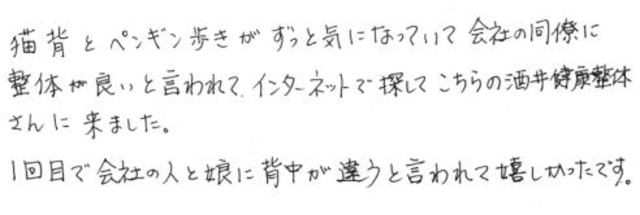 猫背とペンギン歩きがずっと気になっていて会社の同僚に
整体が良いと言われて、インターネットで探してこちらの酒井健康整体
さんに来ました。
1回目で会社の人と娘に背中が違うと言われて嬉しかったです。